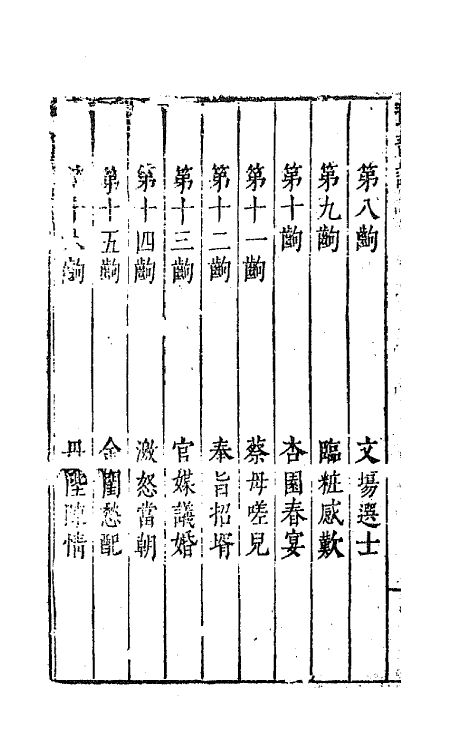 第八齣　文場選士
第九齣　臨粧感歎
第十齣　杏園春宴
第十一齣　蔡母嗟兒
第十二齣　奉旨招壻
第十三齣　官媒議婚
第十四齣　激怒當朝
第十五齣　金閨愁配
第十六齣　丹陛陳情